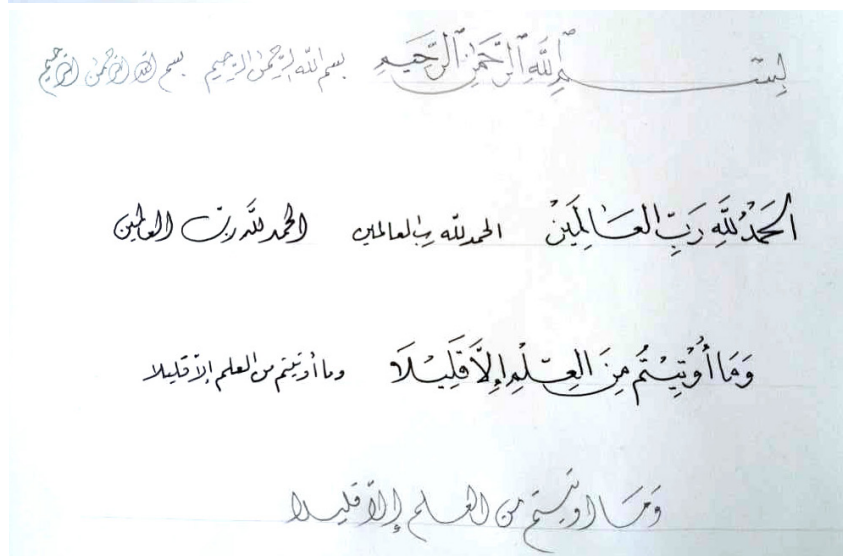 بِسْمِ ٱللَّهِ ٱلرَّحْمَٰنِ ٱلرَّحِيمِ بسم الله الرحمٰن الرحيم بسم الله الرحمٰن الرحيم
الحَمْدُ لِلَّهِ رَبِّ العَالَمِيْنَ الحمد لله رب العالمين الحمد للّه ربّ العالمين
وَمَا أُوْتِيْتُمْ مِنَ العِلْمِ إِلَّا قَلِيْلًا وما أوتيتم من العلم إلّا قليلا
وَمَا اوتيتم من العلم إلّا قليلا